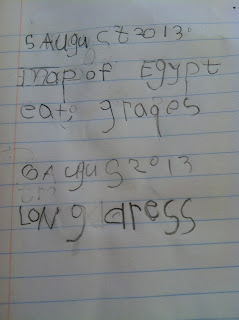 5 August 2013
map of Egypt
eat, grapes
6 August 2013
Long dress